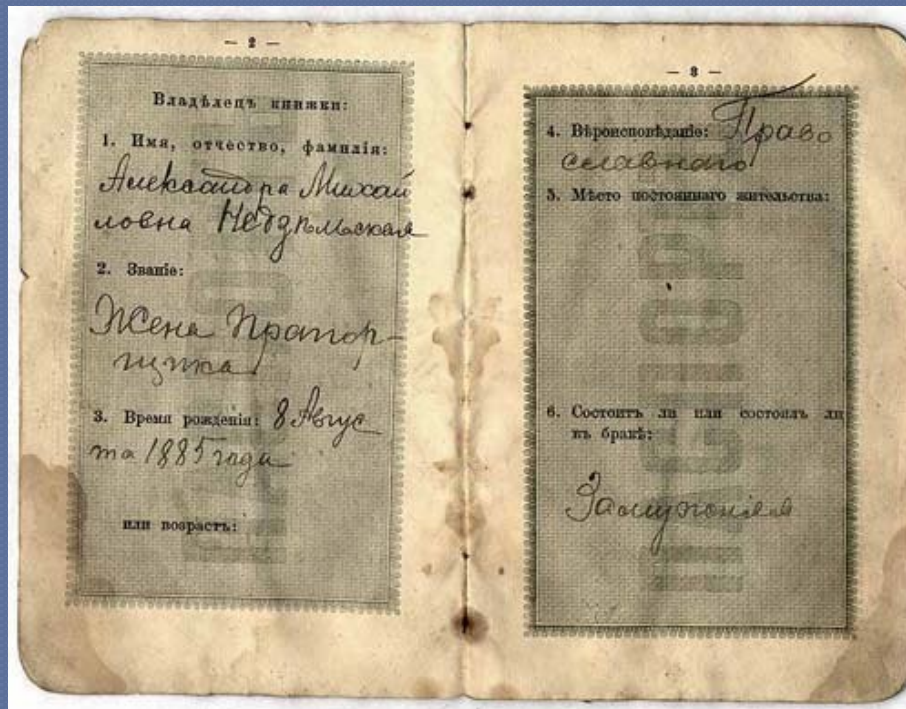 — 2 —
Владѣлецъ книжки:
1. Имя, отчество, фамилія:
Александра Михай
ловна Недзѣльская
2. Званіе:
Жена Прапор-
щика
3. Время рожденія: 8 Авгус
та 1885 года
или возрастъ:
— 3 —
4. Вѣроисповѣданіе: Право
славнаго
5. Мѣсто постояннаго жительства:
6. Состоитъ ли или состоялъ ли
въ бракѣ:
Замужняя